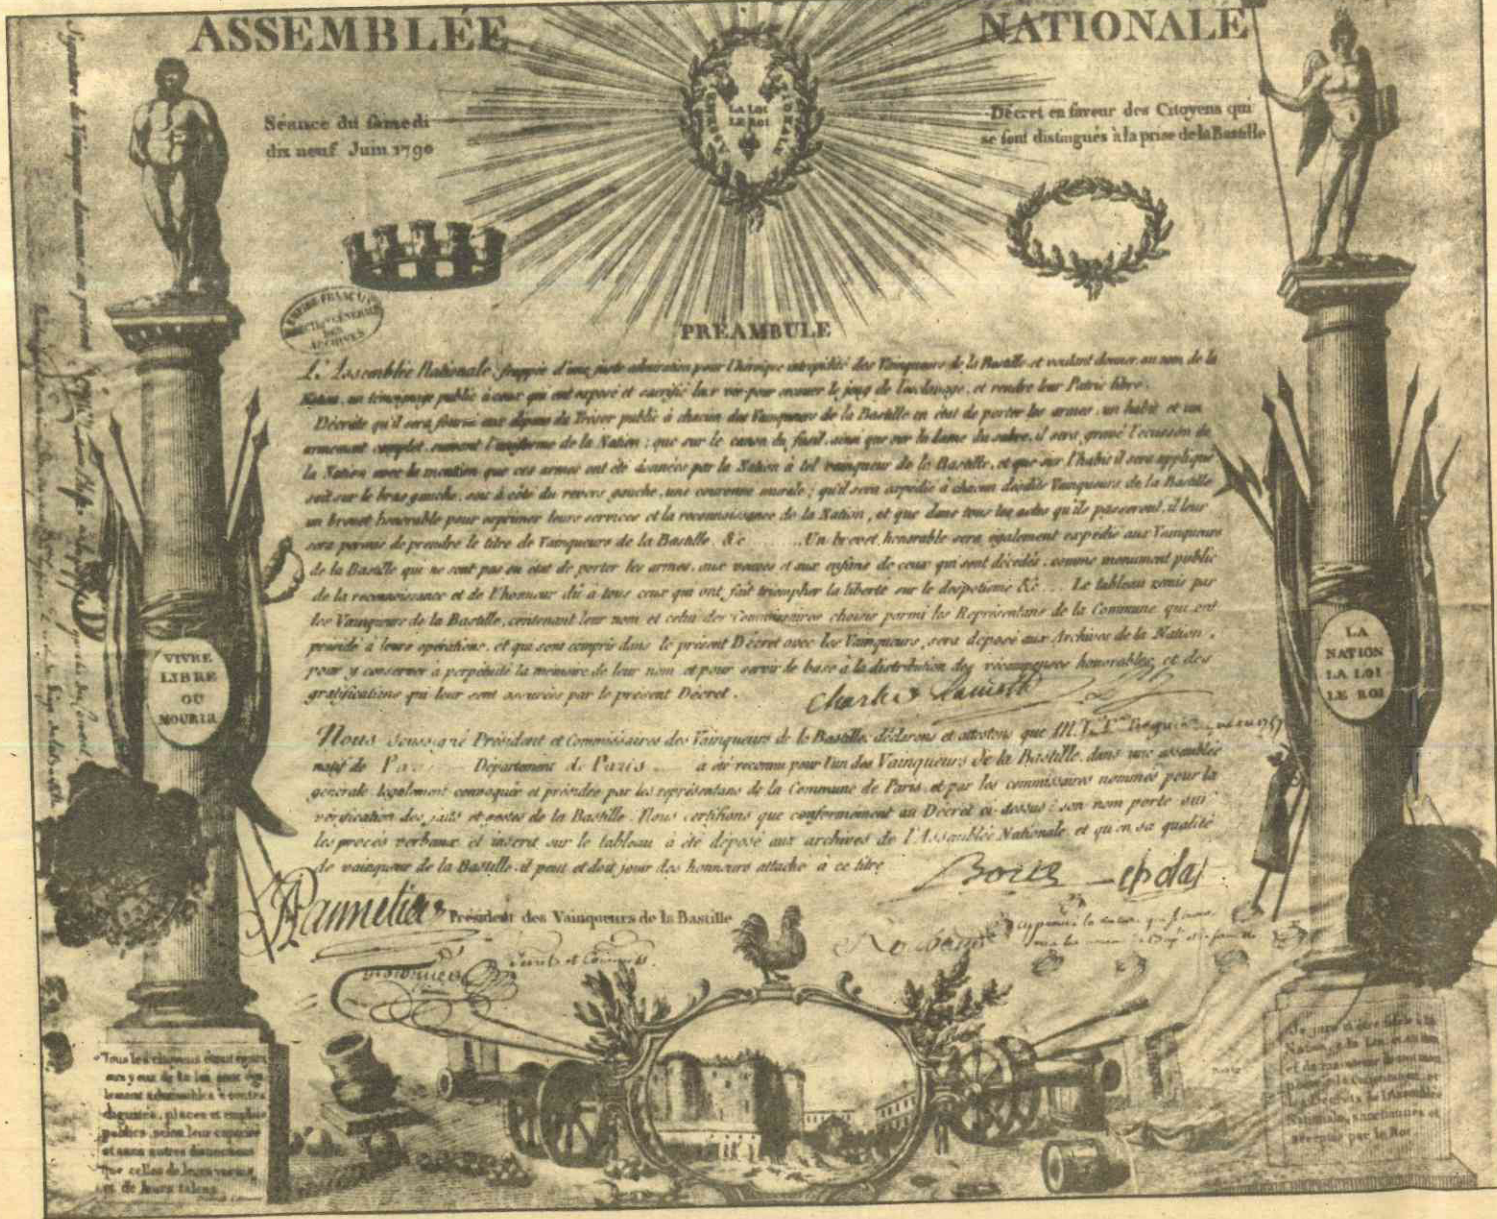 ASSEMBLÉE NATIONALE
Séance du samedi
dix neuf Juin 1790
LA LOI
LE ROI
Décret en faveur des Citoyens qui
se sont distingués à la prise de la Bastille
EMPIRE FRANÇAIS
DES
ARCHIVES
PRÉAMBULE
L'Assemblée Nationale, frappée d'une juste admiration pour l'héroïque intrépidité des Vainqueurs de la Bastille et voulant donner au nom de la
Nation, un témoignage public à ceux qui ont exposé et sacrifié leur vie pour secouer le joug de l'esclavage, et rendre leur Patrie libre.
Décrète qu'il sera fourni aux dépens du Trésor public à chacun des Vainqueurs de la Bastille en état de porter les armes, un habit et un
armement complet, suivant l'uniforme de la Nation ; que sur le canon du fusil, ainsi que sur la lame du sabre, il sera gravé l'écusson de
la Nation avec la mention que ces armes ont été données par la Nation à tel vainqueur de la Bastille, et que sur l'habit il sera appliqué
soit sur le bras gauche, soit à côté du revers gauche, une couronne murale ; qu'il sera expédié à chacun desdits Vainqueurs de la Bastille
un brevet honorable pour exprimer leurs services et la reconnaissance de la Nation, et que dans tous les actes qu'ils passeront, il leur
sera permis de prendre le titre de Vainqueurs de la Bastille &c ..... Un brevet honorable sera également expédié aux Vainqueurs
de la Bastille qui ne sont pas en état de porter les armes, aux veuves et aux enfans de ceux qui sont décédés, comme monument public
de la reconnoissance et de l'honneur dû à tous ceux qui ont fait triompher la liberté sur le despotisme &c .... Le tableau remis par
les Vainqueurs de la Bastille, contenant leur nom et celui des Commissaires choisis parmi les Représentans de la Commune qui ont
présidé à leurs opérations, et qui sont compris dans le présent Décret avec les Vainqueurs, sera déposé aux Archives de la Nation,
pour y conserver à perpétuité la mémoire de leur nom et pour servir de base à la distribution des récompenses honorables, et des
gratifications qui leur sont assurées par le présent Décret.
Nous soussigné Président et Commissaires des Vainqueurs de la Bastille, déclarons et attestons que M.
natif de Département de Paris a été reconnu pour l'un des Vainqueurs de la Bastille, dans une assemblée
générale légalement convoquée et présidée par les représentans de la Commune de Paris, et par les commissaires nommés pour la
vérification des faits et gestes de la Bastille. Nous certifions que conformément au Décret ci-dessus, son nom porté sur
les procès verbaux et inséré sur le tableau à été déposé aux archives de l'Assemblée Nationale, et qu'en sa qualité
de vainqueur de la Bastille, il peut et doit jouir des honneurs attaché à ce titre
Président des Vainqueurs de la Bastille
VIVRE
LIBRE
OU
MOURIR
LA
NATION
LA LOI
LE ROI
Tous les citoyens étant égaux
aux yeux de la loi, sont éga
lement admissibles à toutes
dignités, places et emplois
publics, selon leur capacité
et sans autres distinctions
que celles de leurs vertus,
et de leurs talens
Je jure d'être fidèle à la
Nation, à la Loi, et au Roi
et de maintenir de tout mon
pouvoir la Constitution, et
les Décrets de l'Assemblée
Nationale, sanctionnés et
acceptés par le Roi